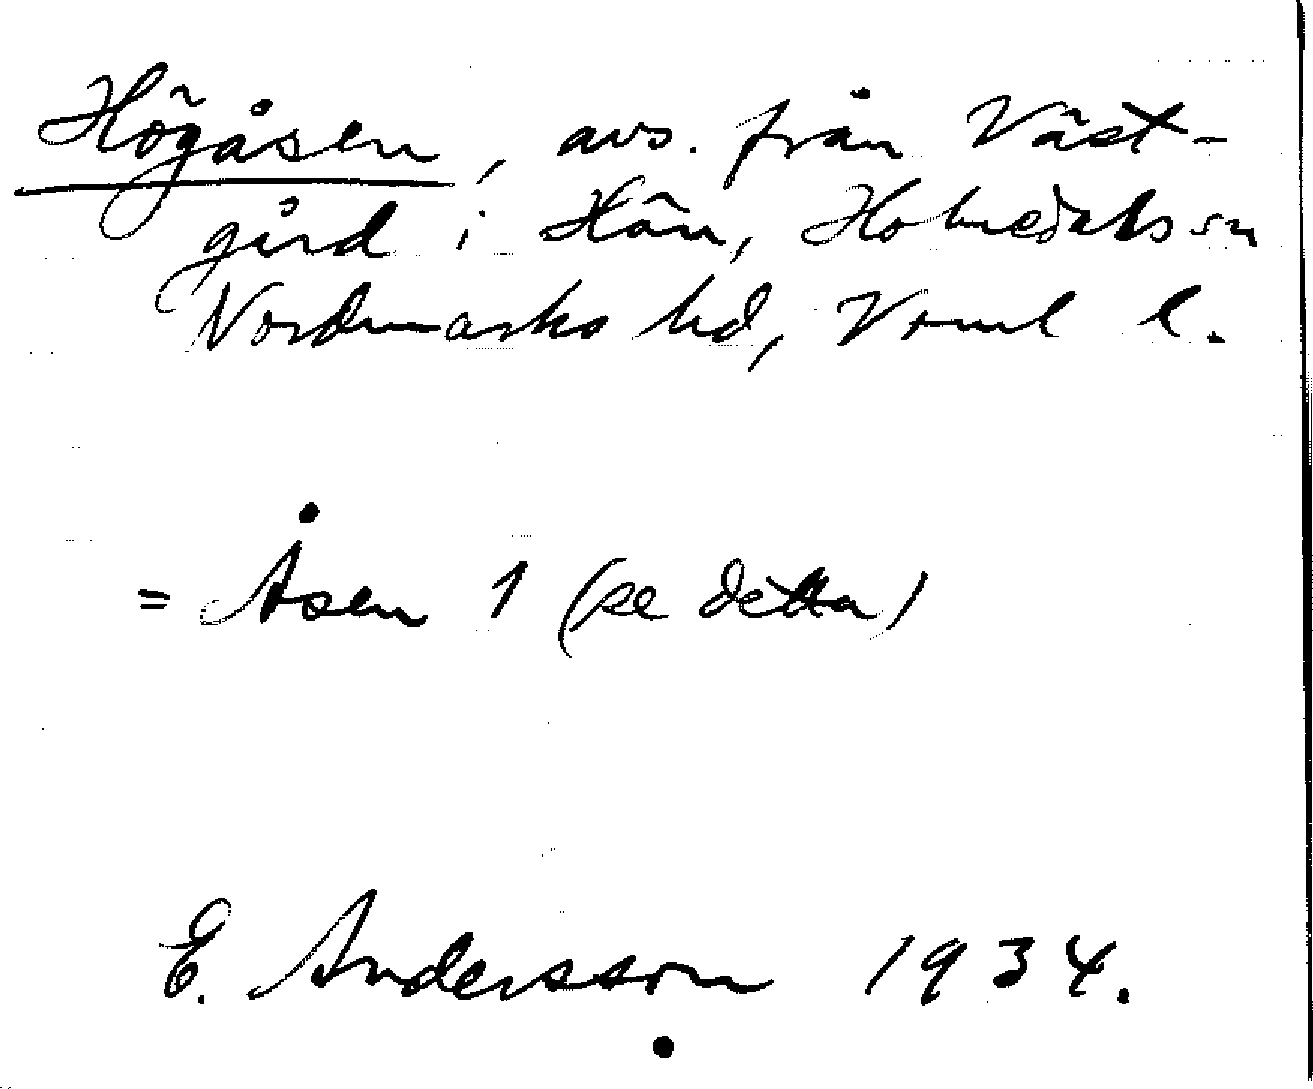 Högåsen, avs. från Väst-
gård i Hån, Holmedals sn
Nordmarks hd, Värml l.
= Åsen 1 (se detta)
E. Andersson 1934.